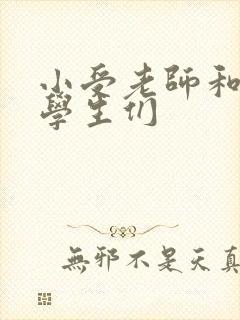 小受老師和
學生们
無邪不是天真